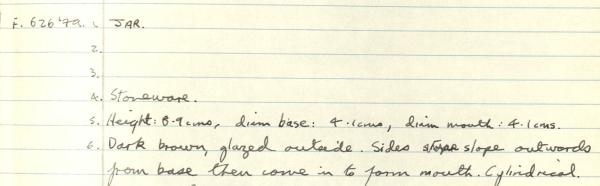 F. 626'79. 1. JAR.
2.
3.
4. Stoneware.
5. Height: 8.9cms, diam base: 4.1cms, diam mouth: 4.1cms.
6. Dark brown, glazed outside. Sides slope outwards
from base then come in to form mouth. Cylindrical.